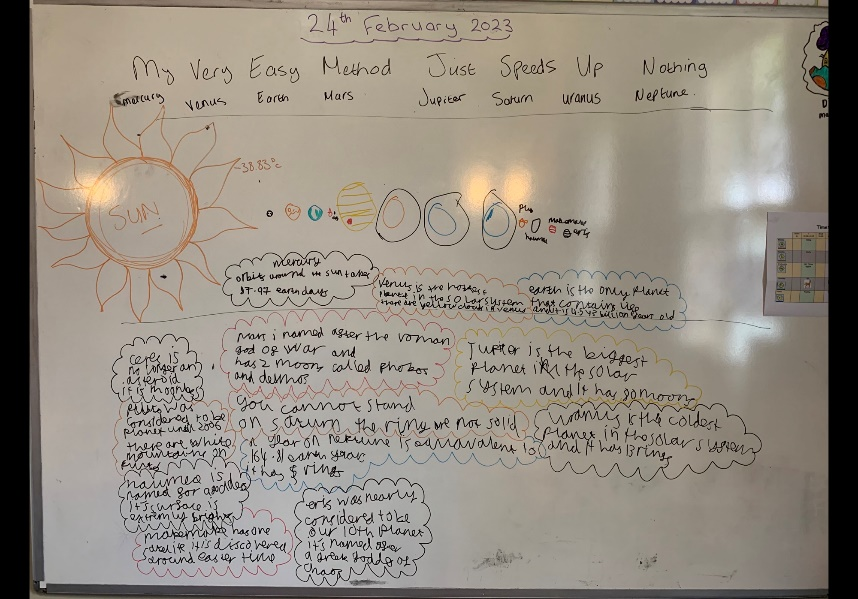 24th February 2023
My Very Easy Method Just Speeds Up Nothing
mercury Venus Earth Mars Jupiter Saturn uranus Neptune.
-38.83°c
SUN
mercury
orbits around the sun takes
87.97 earth days
Venus is the hottest
Planet in the solar system
there are yellow clouds in venus
earth is the only planet
that contains life
and it is billion years old
Mars i named after the roman
god of war and
has 2 moons called phobos
and deimos
Jupiter is the biggest
Planet in the solar
system and it has 80 moons
ceres is
no longer an
asteroid
it is
Pluto was
considered to be
planet until 2006
there are white
mountains on
You cannot stand
on saturn the ring are not solid
a year on neptune is equivalent to
164.81 earth year
it has 5 rings
uranus is the coldest
planet in the solar system
and it has 13 rings
haumea is
named for a goddes
its surface is
extremely bright
makemake has one
satelite it is discovered
around easter time
eris was nearly
considered to be
our 10th planet
its named after
a greek goddes of
chaos